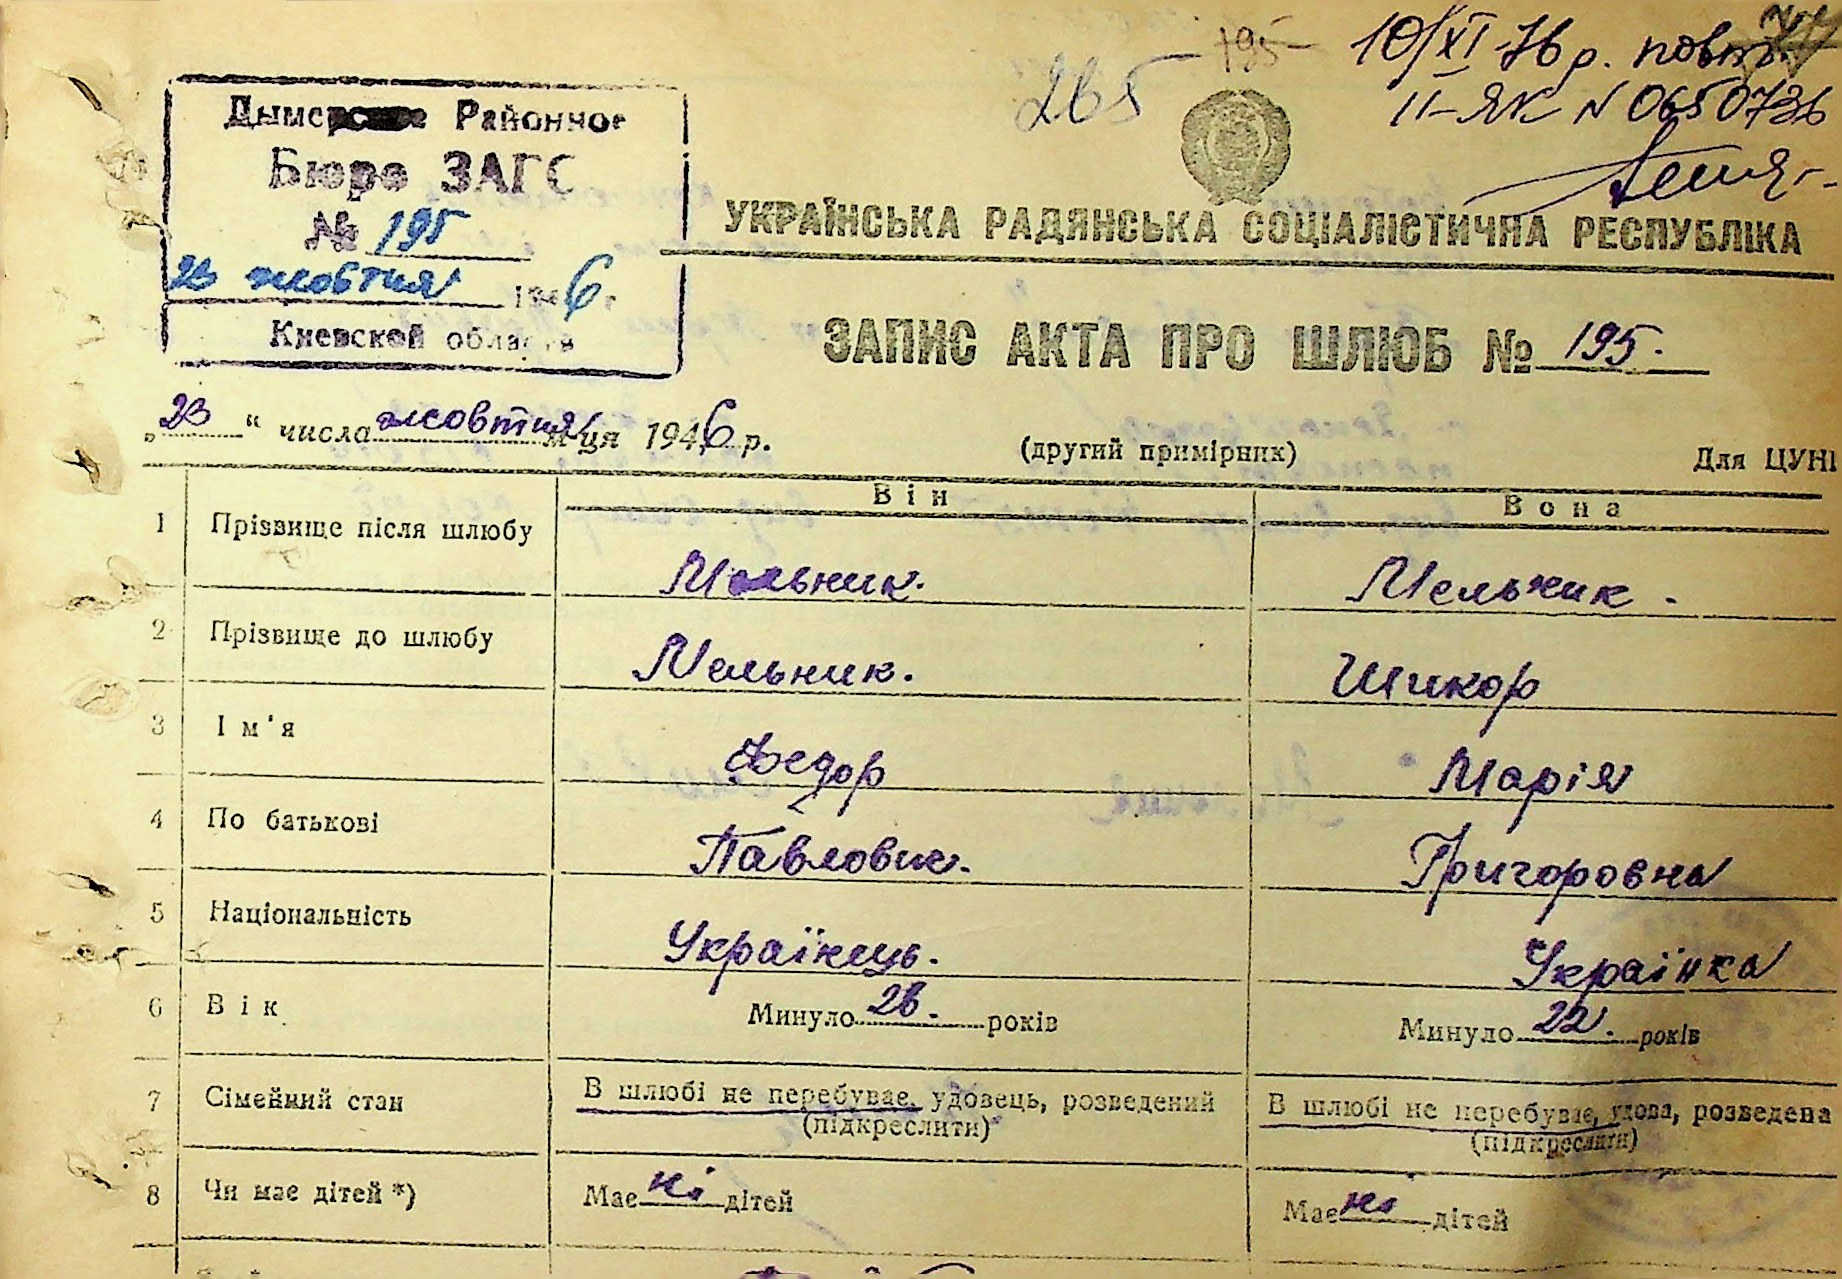 195
265
10/XI 76 р. повт.
II-ЯК N 0650736
Дымерское Районное
Бюро ЗАГС
№ 195
23 жовтня 1946 г
Киевской области
УКРАЇНСЬКА РАДЯНСЬКА СОЦІАЛІСТИЧНА РЕСПУБЛІКА
ЗАПИС АКТА ПРО ШЛЮБ № 195.
„23" числа жовтня м-ця 1946 р.
(другий примірник)
Для ЦУНІ
Він Вона
1 Прізвище після шлюбу Мельник. Мельник.
2 Прізвище до шлюбу Мельник. Шикор
3 Ім'я Федор Марія
4 По батькові Павлович. Григоровна
5 Національність Українець. Українка
6 Вік Минуло 26. років Минуло 22. років
7 Сімейний стан В шлюбі не перебуває, удовець, розведений В шлюбі не перебуває, удова, розведена
(підкреслити) (підкреслити)
8 Чи має дітей *) Має ні дітей Має ні дітей